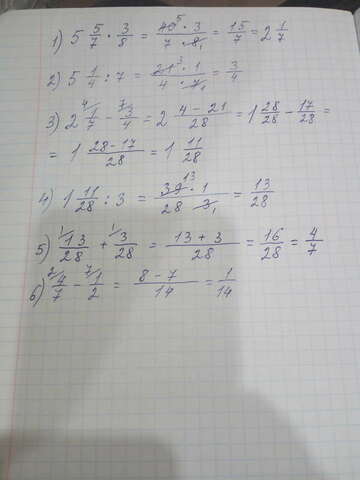 1) 5 5/7 · 3/8 = 40⁵ · 3 / 7 · 8₁ = 15/7 = 2 1/7
2) 5 1/4 : 7 = 21³ · 1 / 4 · 7₁ = 3/4
3) 2 ⁴⁄1/7 - ⁷⁄3/4 = 2 4 - 21 / 28 = 1 28/28 - 17/28 =
= 1 28 - 17 / 28 = 1 11/28
4) 1 11/28 : 3 = 39¹³ · 1 / 28 · 3₁ = 13/28
5) ¹⁄13/28 + ¹⁄3/28 = 13 + 3 / 28 = 16/28 = 4/7
6) ²⁄4/7 - ⁷⁄1/2 = 8 - 7 / 14 = 1/14